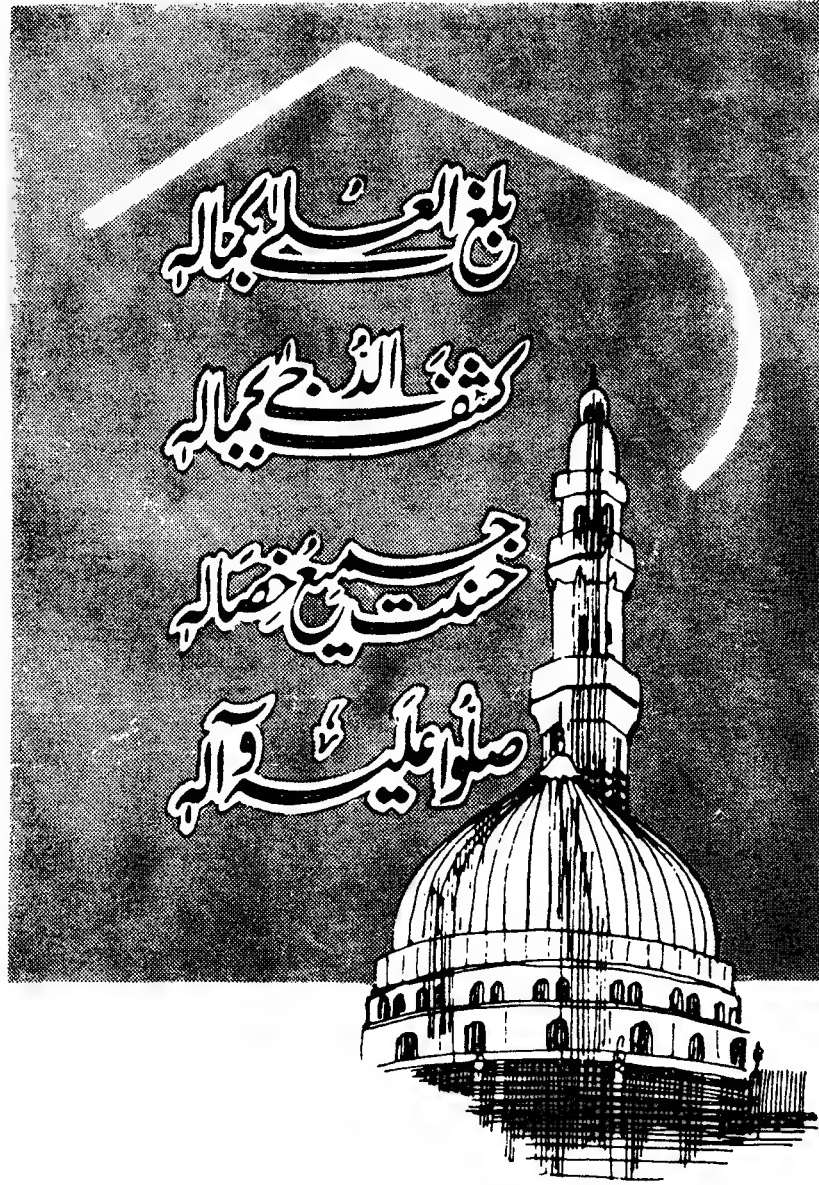 بلغ العلےٰ بکمالہٖ
کشفَ الدُّجےٰ بجمالہٖ
حسنت جمیعُ خِصَالہٖ
صلّوا علَیہ وَآلہٖ